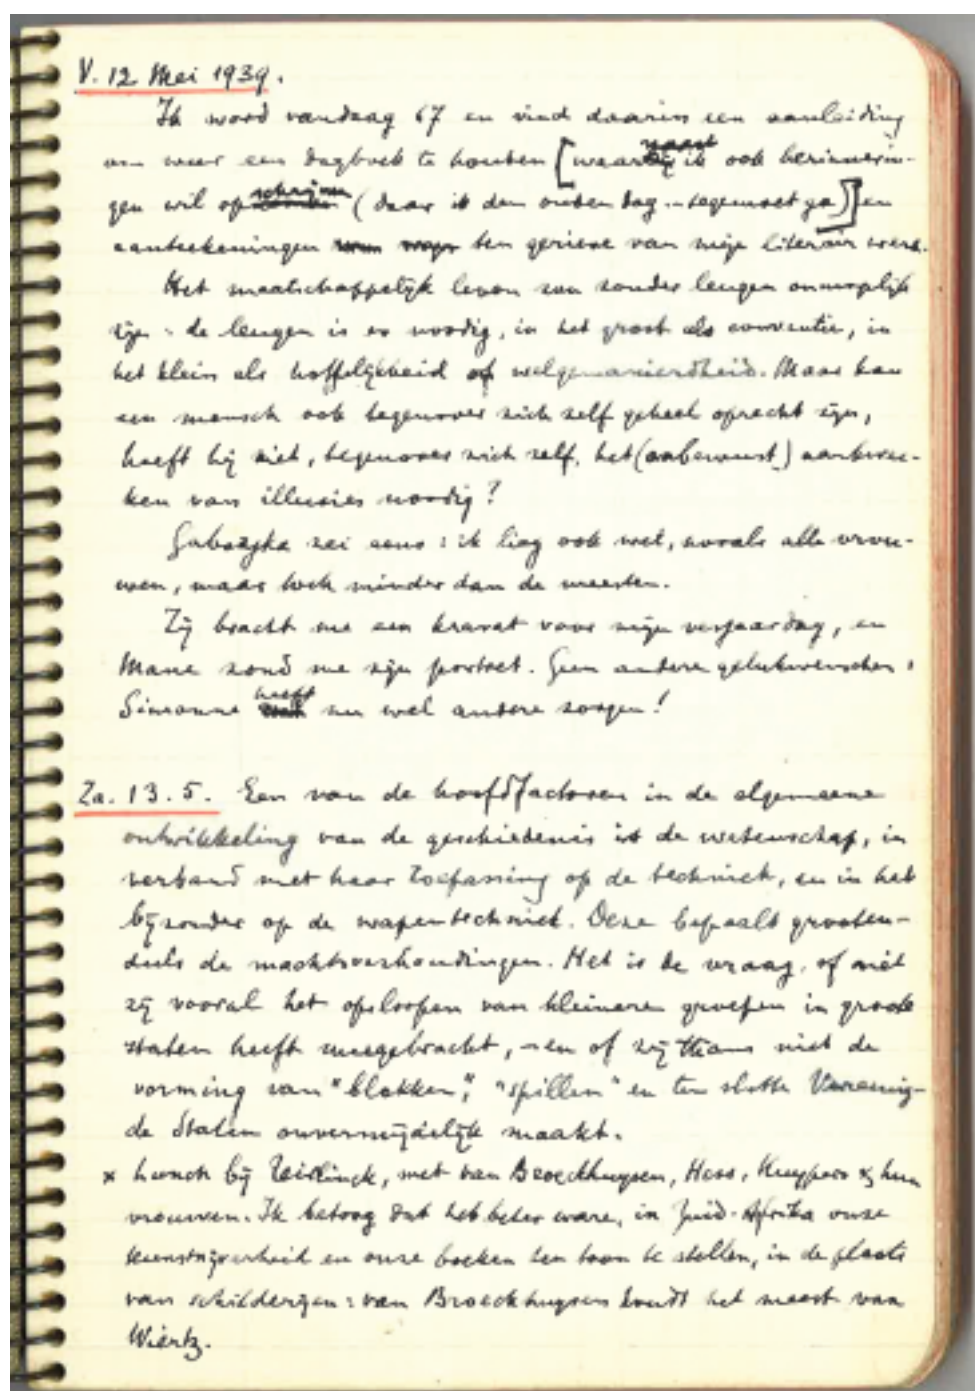 V. 12 Mei 1939.
Ik word vandaag 67 en vind daarin een aanleiding
om weer een dagboek te houden [waarnaast ik ook herinnerin-
gen wil opschrijven (daar ik den ouden dag tegemoet ga)] en
aanteekeningen ten gerieve van mijn literair werk.
Het maatschappelijk leven zou zonder leugen onmogelijk
zijn: de leugen is er noodig, in het groot als conventie, in
het klein als hoffelijkheid of welgemanierdheid. Maar kan
een mensch ook tegenover zich zelf geheel oprecht zijn,
heeft hij niet, tegenover zich zelf, het (onbewust) aankwee-
ken van illusies noodig?
zei eens: ik lieg ook wel, zooals alle vrou-
wen, maar toch minder dan de meesten.
Zij bracht me een kravat voor mijn verjaardag, en
Mane zond me zijn portret. Geen andere gelukwenschen:
Simonne heeft nu wel andere zorgen!
Za. 13.5. Een van de hoofdfactoren in de algemeene
ontwikkeling van de geschiedenis is de wetenschap, in
verband met haar toepassing op de techniek, en in het
bijzonder op de wapentechniek. Deze bepaalt grooten-
deels de machtsverhoudingen. Het is de vraag, of niet
zij vooral het opsloopen van kleinere groepen in groote
staten heeft meegebracht, en of zij thans niet de
vorming van "blokken", "spillen" en ten slotte Vereenig-
de Staten onvermijdelijk maakt.
x Lunch bij Teirlinck, met van Broeckhuysen, Hess, Kuypers & hun
vrouwen. Ik betoog dat het beter ware, in Zuid-Afrika onze
kunstnijverheid en onze boeken ten toon te stellen, in de plaats
van schilderijen: van Broeckhuysen houdt het meest van
Wiertz.